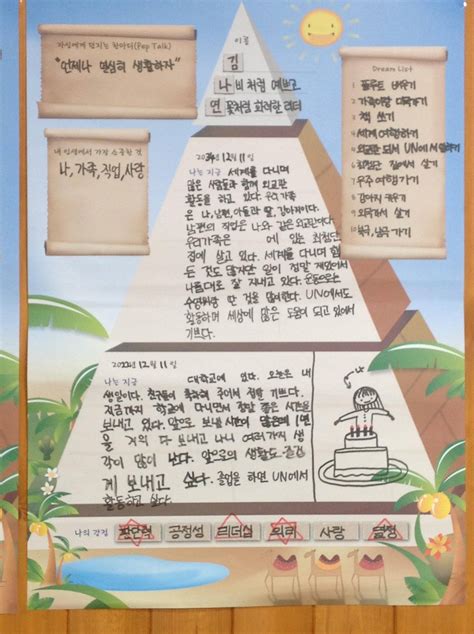 자신에게 던지는 한마디(Pep Talk)
"언제나 열심히 생활하자"
내 인생에서 가장 소중한 것
나, 가족, 직업, 사랑
이름
김
나 비처럼 예쁘고
연 꽃처럼 화려한 리더
Dream List
1 플루트 배우기
2 가족이랑 미국가기
3 책 쓰기
4 세계여행하기
5 외교관 되서 UN에서 일하기
6 최첨단 집에서 살기
7 우주여행가기
8 강아지 키우기
9 외국에서 살기
10 북극, 남극 가기
12월 11일
나는 지금 세계를 다니며
많은 사람들과 함께 외교관
활동을 하고 있다. 우리 가족
은 나, 남편, 아들과 딸, 강아지이다.
남편의 직업은 나와 같은 외교관이다.
우리가족은 에 있는 최첨단
집에 살고 있다. 세계를 다니며 힘
든 것도 많지만 일이 정말 재밌어서
나름대로 잘 지내고 있다. 운동으로
수영
UN에서도
활동하며 세상에 많은 도움이 되고 있어서
기쁘다.
2022년 12월 11일
나는 지금 대학교에 있다. 오늘은 내
생일이다. 친구들이 축하해 주어서 정말 기쁘다.
지금까지 학교에 다니면서 정말 좋은 시간을
보내고 있다. 앞으로 보낼 시간이 많은데 1년
을 거의 다 보내고 나니 여러가지 생
각이 많이 난다. 앞으로의 생활도 즐겁
게 보내고 싶다. 졸업을 하면 UN에서
활동하고 싶다.
나의 강점
판단력 긍정성 리더십 의리 사랑 열정